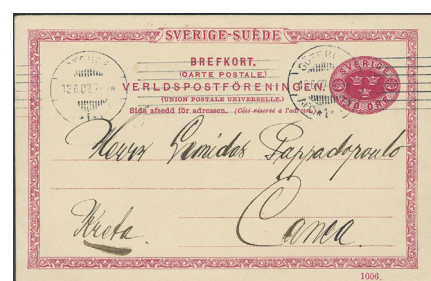 SVERIGE-SUÈDE
BREFKORT.
(CARTE POSTALE.)
VERLDSPOSTFÖRENINGEN.
(UNION POSTALE UNIVERSELLE.)
Sida afsedd för adressen. (Côté réservé à l'adr
SVERIGE
TIO ÖRE
GÖTEB
12 6 07
Herrn Leonidas Pappadopoulo
Kreta.
Canea.
1006.